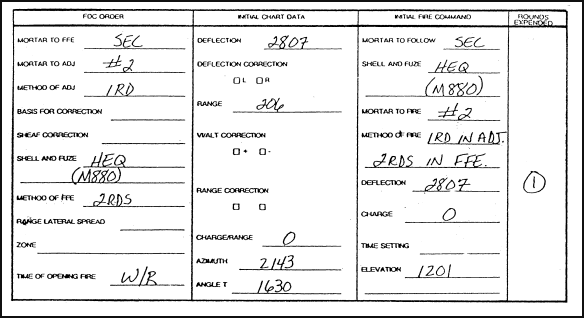 FDC ORDER
MORTAR TO FFE SEC
MORTAR TO ADJ #2
METHOD OF ADJ 1RD
BASIS FOR CORRECTION
SHEAF CORRECTION
SHELL AND FUZE HEQ
(M880)
METHOD OF FFE 2RDS
RANGE LATERAL SPREAD
ZONE
TIME OF OPENING FIRE W/R
INITIAL CHART DATA
DEFLECTION 2807
DEFLECTION CORRECTION
L R
RANGE 206
VI/ALT CORRECTION
+ -
RANGE CORRECTION
CHARGE/RANGE 0
AZIMUTH 2143
ANGLE T 1630
INITIAL FIRE COMMAND
MORTAR TO FOLLOW SEC
SHELL AND FUZE HEQ
(M880)
MORTAR TO FIRE #2
METHOD OF FIRE 1RD IN ADJ.
2RDS IN FFE.
DEFLECTION 2807
CHARGE 0
TIME SETTING
ELEVATION 1201
ROUNDS
EXPENDED
1